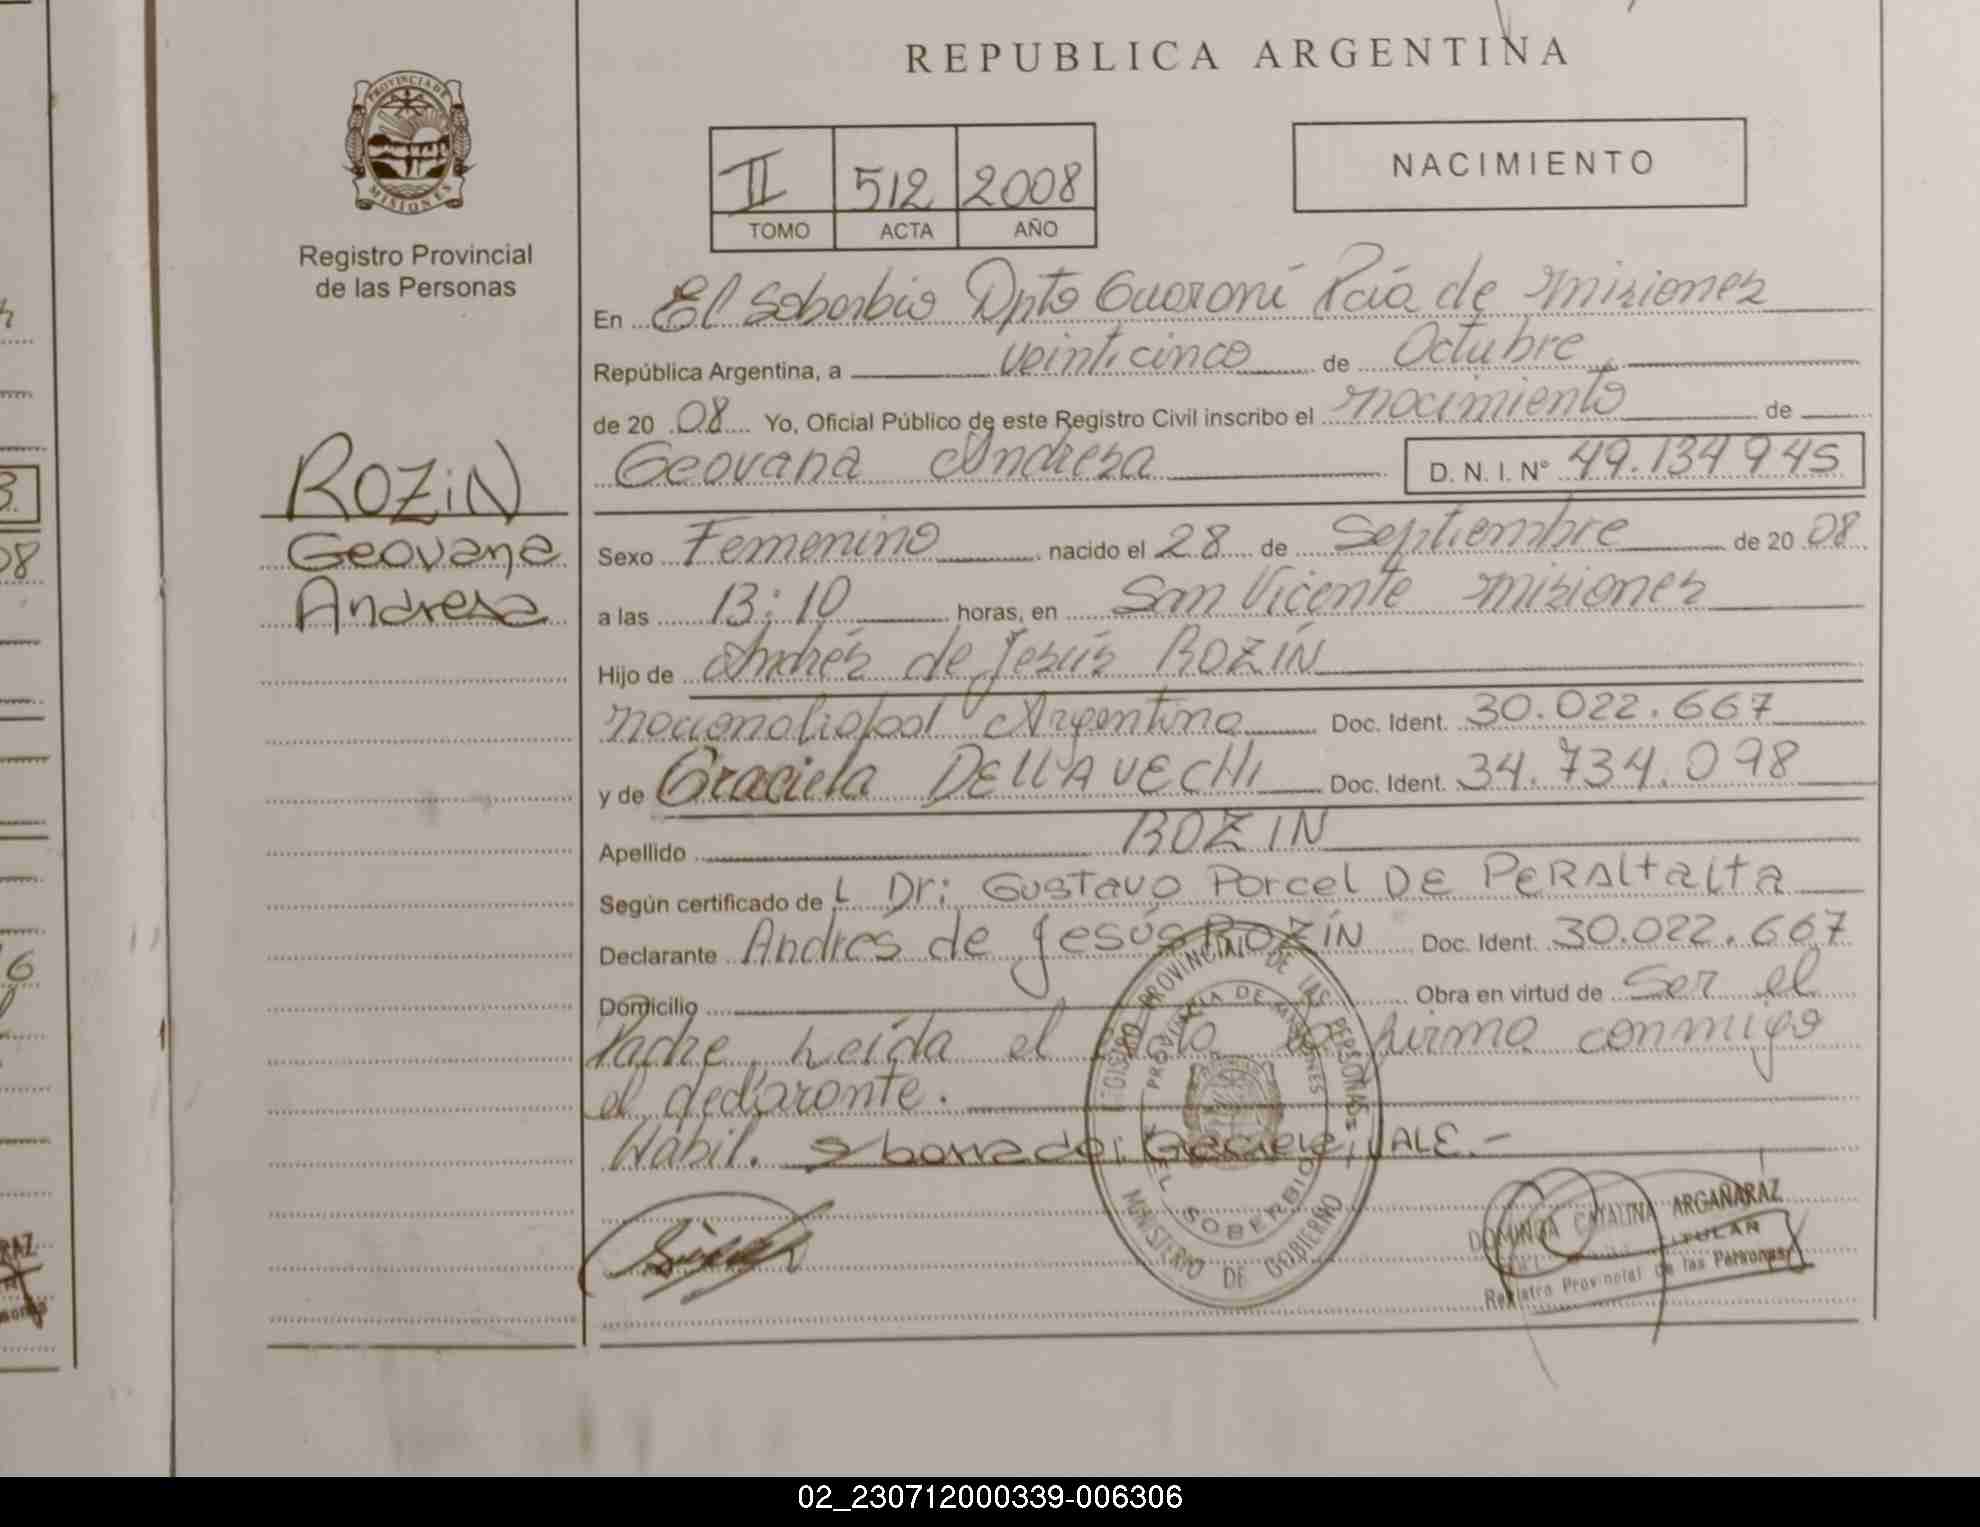 REPUBLICA ARGENTINA
PROVINCIA DE
MISIONES
Registro Provincial
de las Personas
II 512 2008
TOMO ACTA AÑO
NACIMIENTO
En El Soberbio Dpto Guaraní Pcia de Misiones
República Argentina, a veinticinco de Octubre
de 20 08 Yo, Oficial Público de este Registro Civil inscribo el nacimiento de
Geovana Andresa D. N. I. N° 49.134945
ROZiN
Geovana
Andresa
Sexo Femenino nacido el 28 de Septiembre de 20 08
a las 13:10 horas, en San Vicente Misiones
Hijo de Andrés de Jesús ROZÍN
nacionalidad Argentina Doc. Ident. 30.022.667
y de Graciela DELLAVECHI Doc. Ident. 34.734.098
Apellido ROZIN
Según certificado de L Dr: GUSTAVO PORCEL DE PERALtALtA
Declarante Andrés de Jesús ROZÍN Doc. Ident. 30.022.667
Domicilio Obra en virtud de Ser el
Padre, Leída el acta la firma conmigo
el declarante.
Hábil. borrado: VALE.-
REGISTRO PROVINCIAL DE LAS PERSONAS
PROVINCIA DE MISIONES
EL SOBERBIO
MINISTERIO DE GOBIERNO
DOMINGA CATALINA ARGAÑARAZ
TITULAR
Registro Provincial de las Personas
02_230712000339-006306